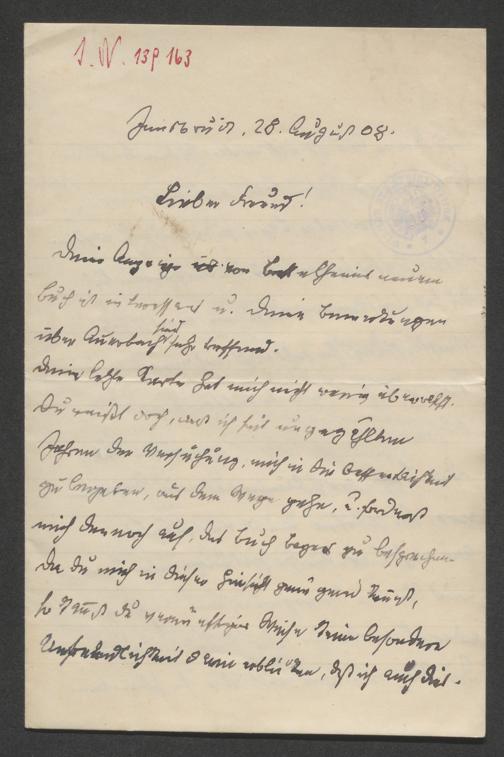 I. N. 139 163
Innsbruck, 28. August 08.
Lieber Freund!
Deine Anzeige von Bettelheims neuem
Buch ist interessant u. Deine Bemerkungen
über Auerbach sind sehr treffend.
Deine letzte Karte hat mich nicht wenig überrascht.
Du weißt doch, daß ich seit ungezählten
Jahren der Versuchung, mich in die Oeffentlichkeit
zu begeben, aus dem Wege gehe, u. forderst
mich dennoch auf, das Buch zu besprechen.
Da du mich in dieser Hinsicht genügend kennst,
so kannst du vernünftiger Weise keine besondere
Unfreundlichkeit darin erblicken, daß ich auch dies-